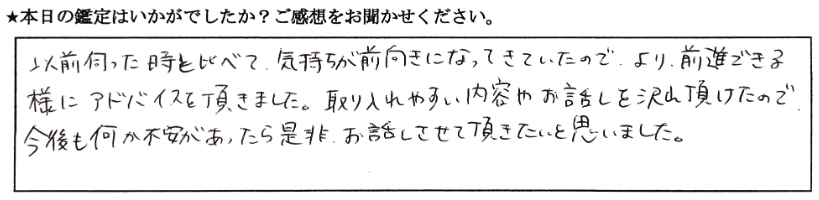 ★本日の鑑定はいかがでしたか？ご感想をお聞かせください。
以前伺った時と比べて、気持ちが前向きになってきていたので、より、前進できる
様にアドバイスを頂きました。取り入れやすい内容やお話しを沢山頂けたので、
今後も何か不安があったら是非、お話しさせて頂きたいと思いました。